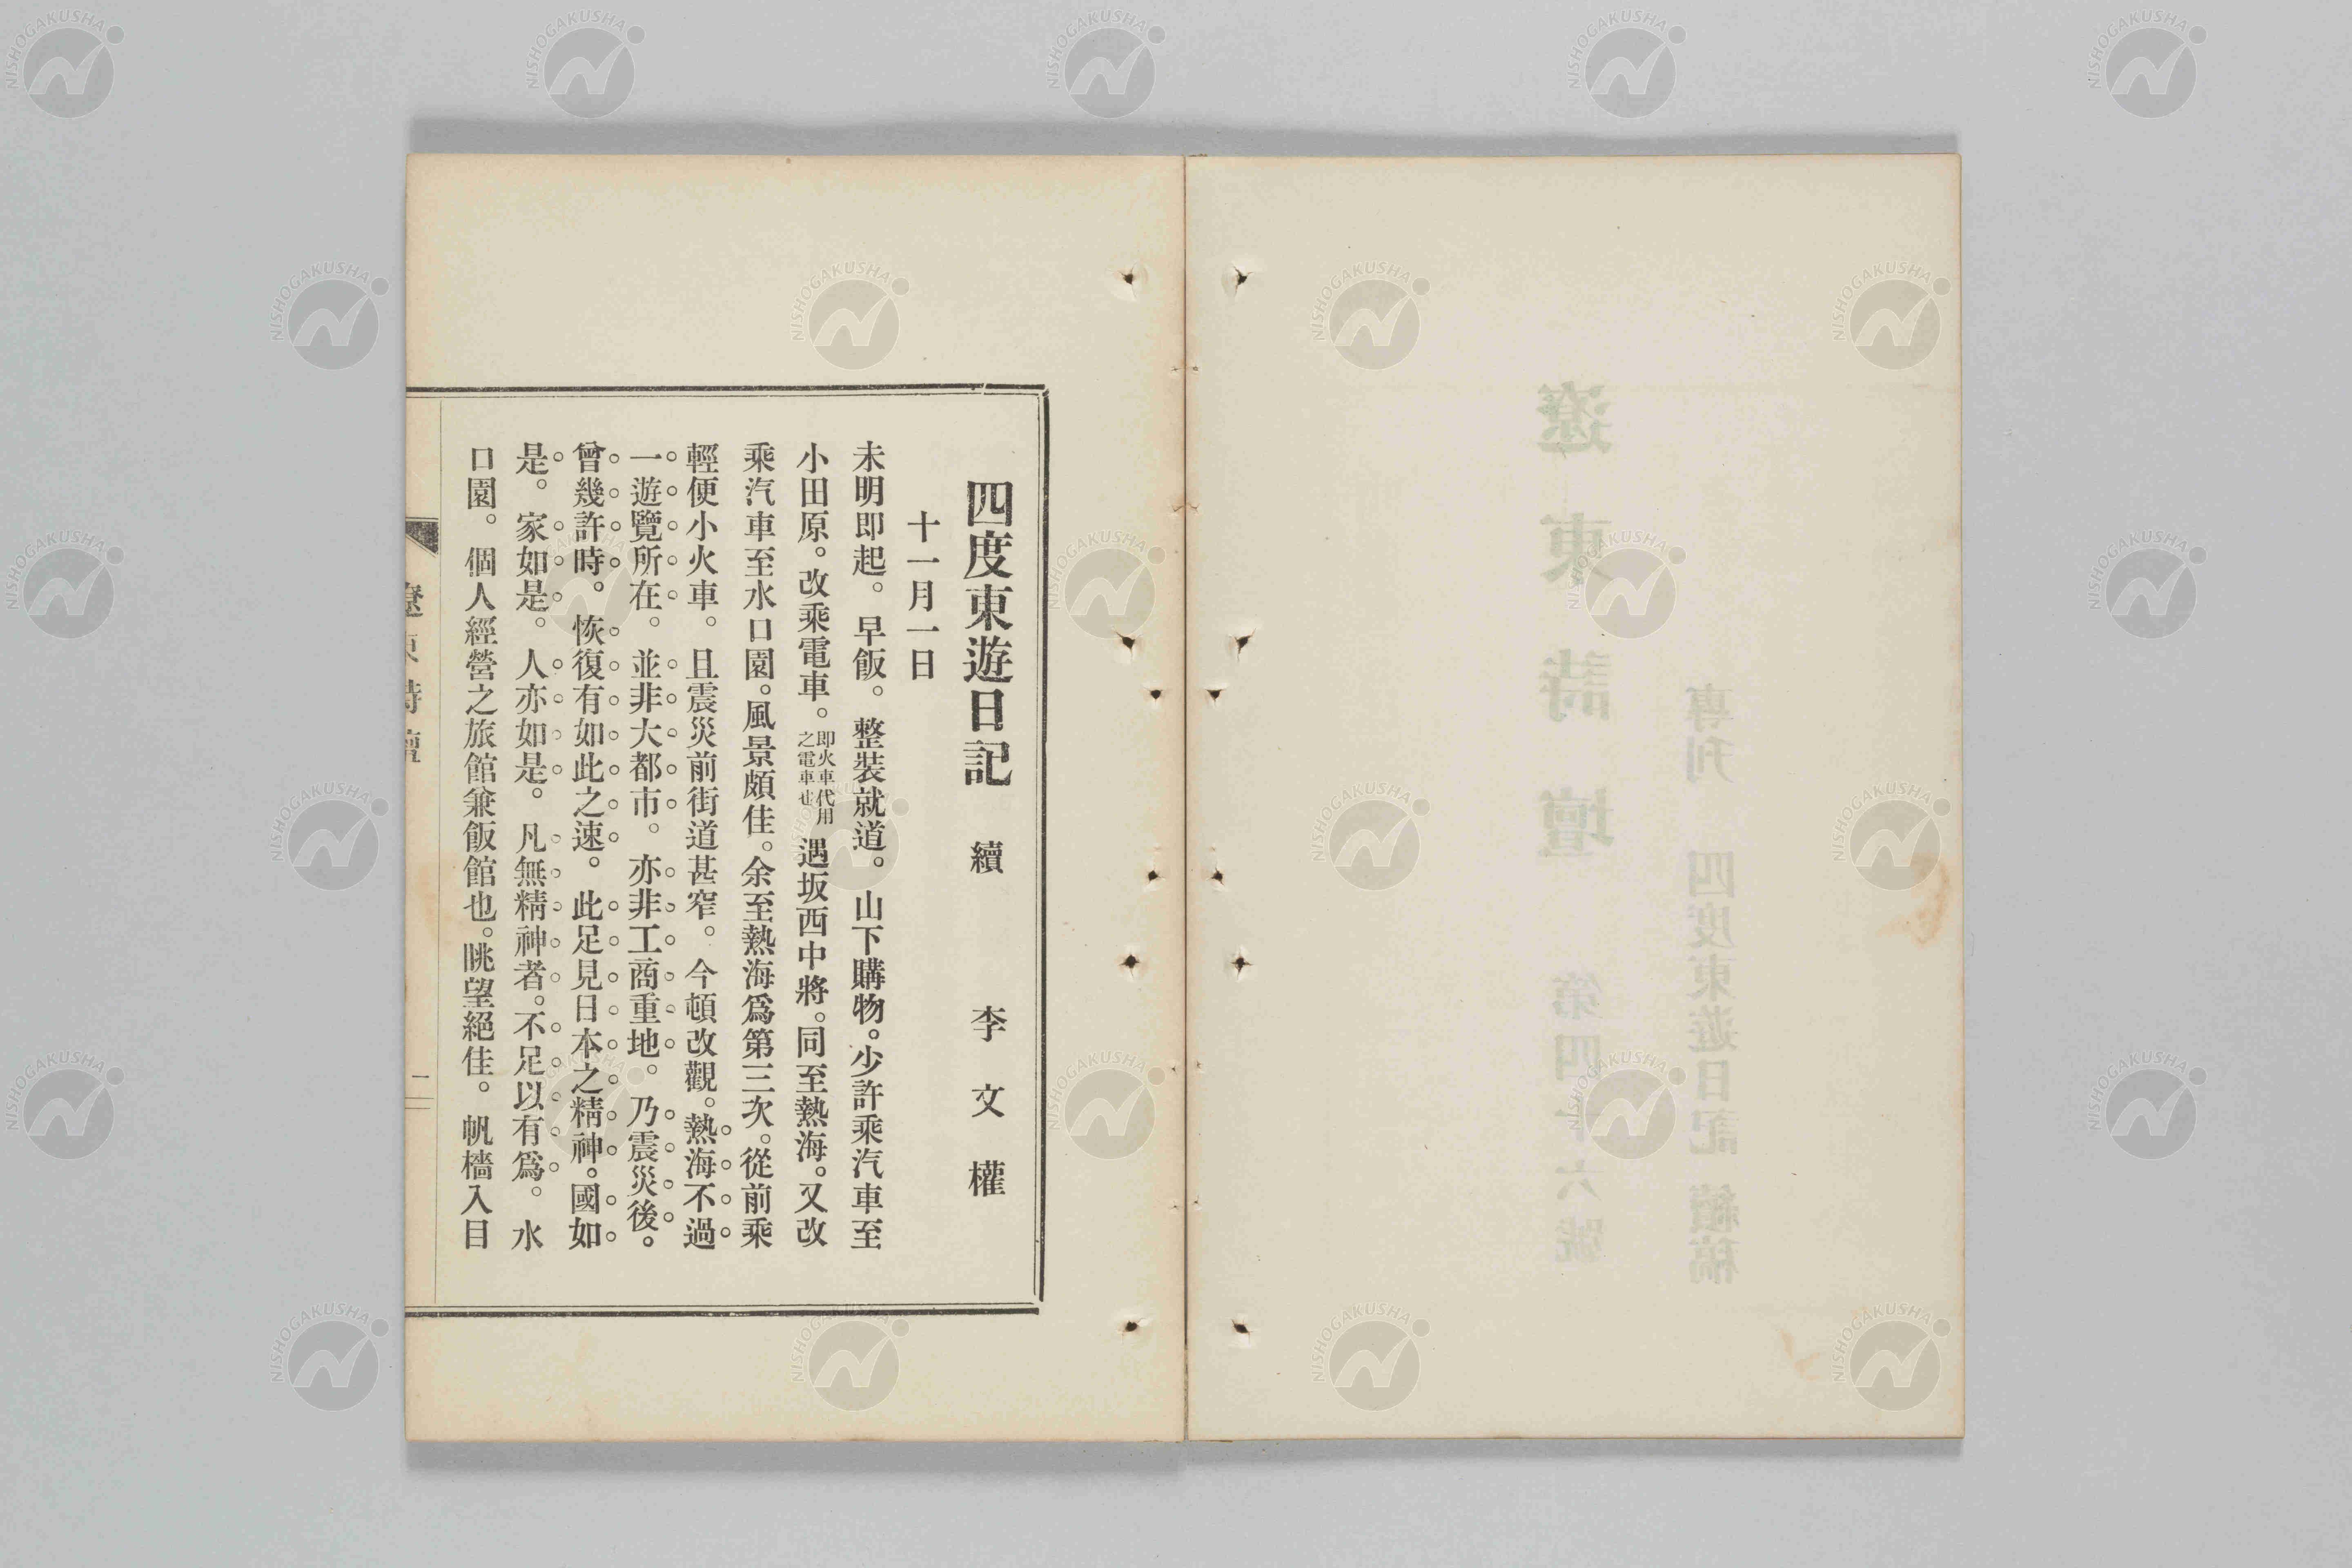 四度東遊日記 續 李文權
十一月一日
未明即起。早飯。整裝就道。山下購物。少許乘汽車至
小田原。改乘電車。即火車代用之電車也遇坂西中將。同至熱海。又改
乘汽車至水口園。風景頗佳。余至熱海爲第三次。從前乘
輕便小火車。且震災前街道甚窄。今頓改觀。熱海不過
一遊覽所在。並非大都市。亦非工商重地。乃震災後。
曾幾許時。恢復有如此之速。此足見日本之精神。國如
是。家如是。人亦如是。凡無精神者。不足以有爲。水
口園。個人經營之旅館兼飯館也。眺望絕佳。帆檣入目
遼東詩壇
一
專刊 四度東遊日記 續稿
遼東詩壇 第四十六號
NISHOGAKUSHA